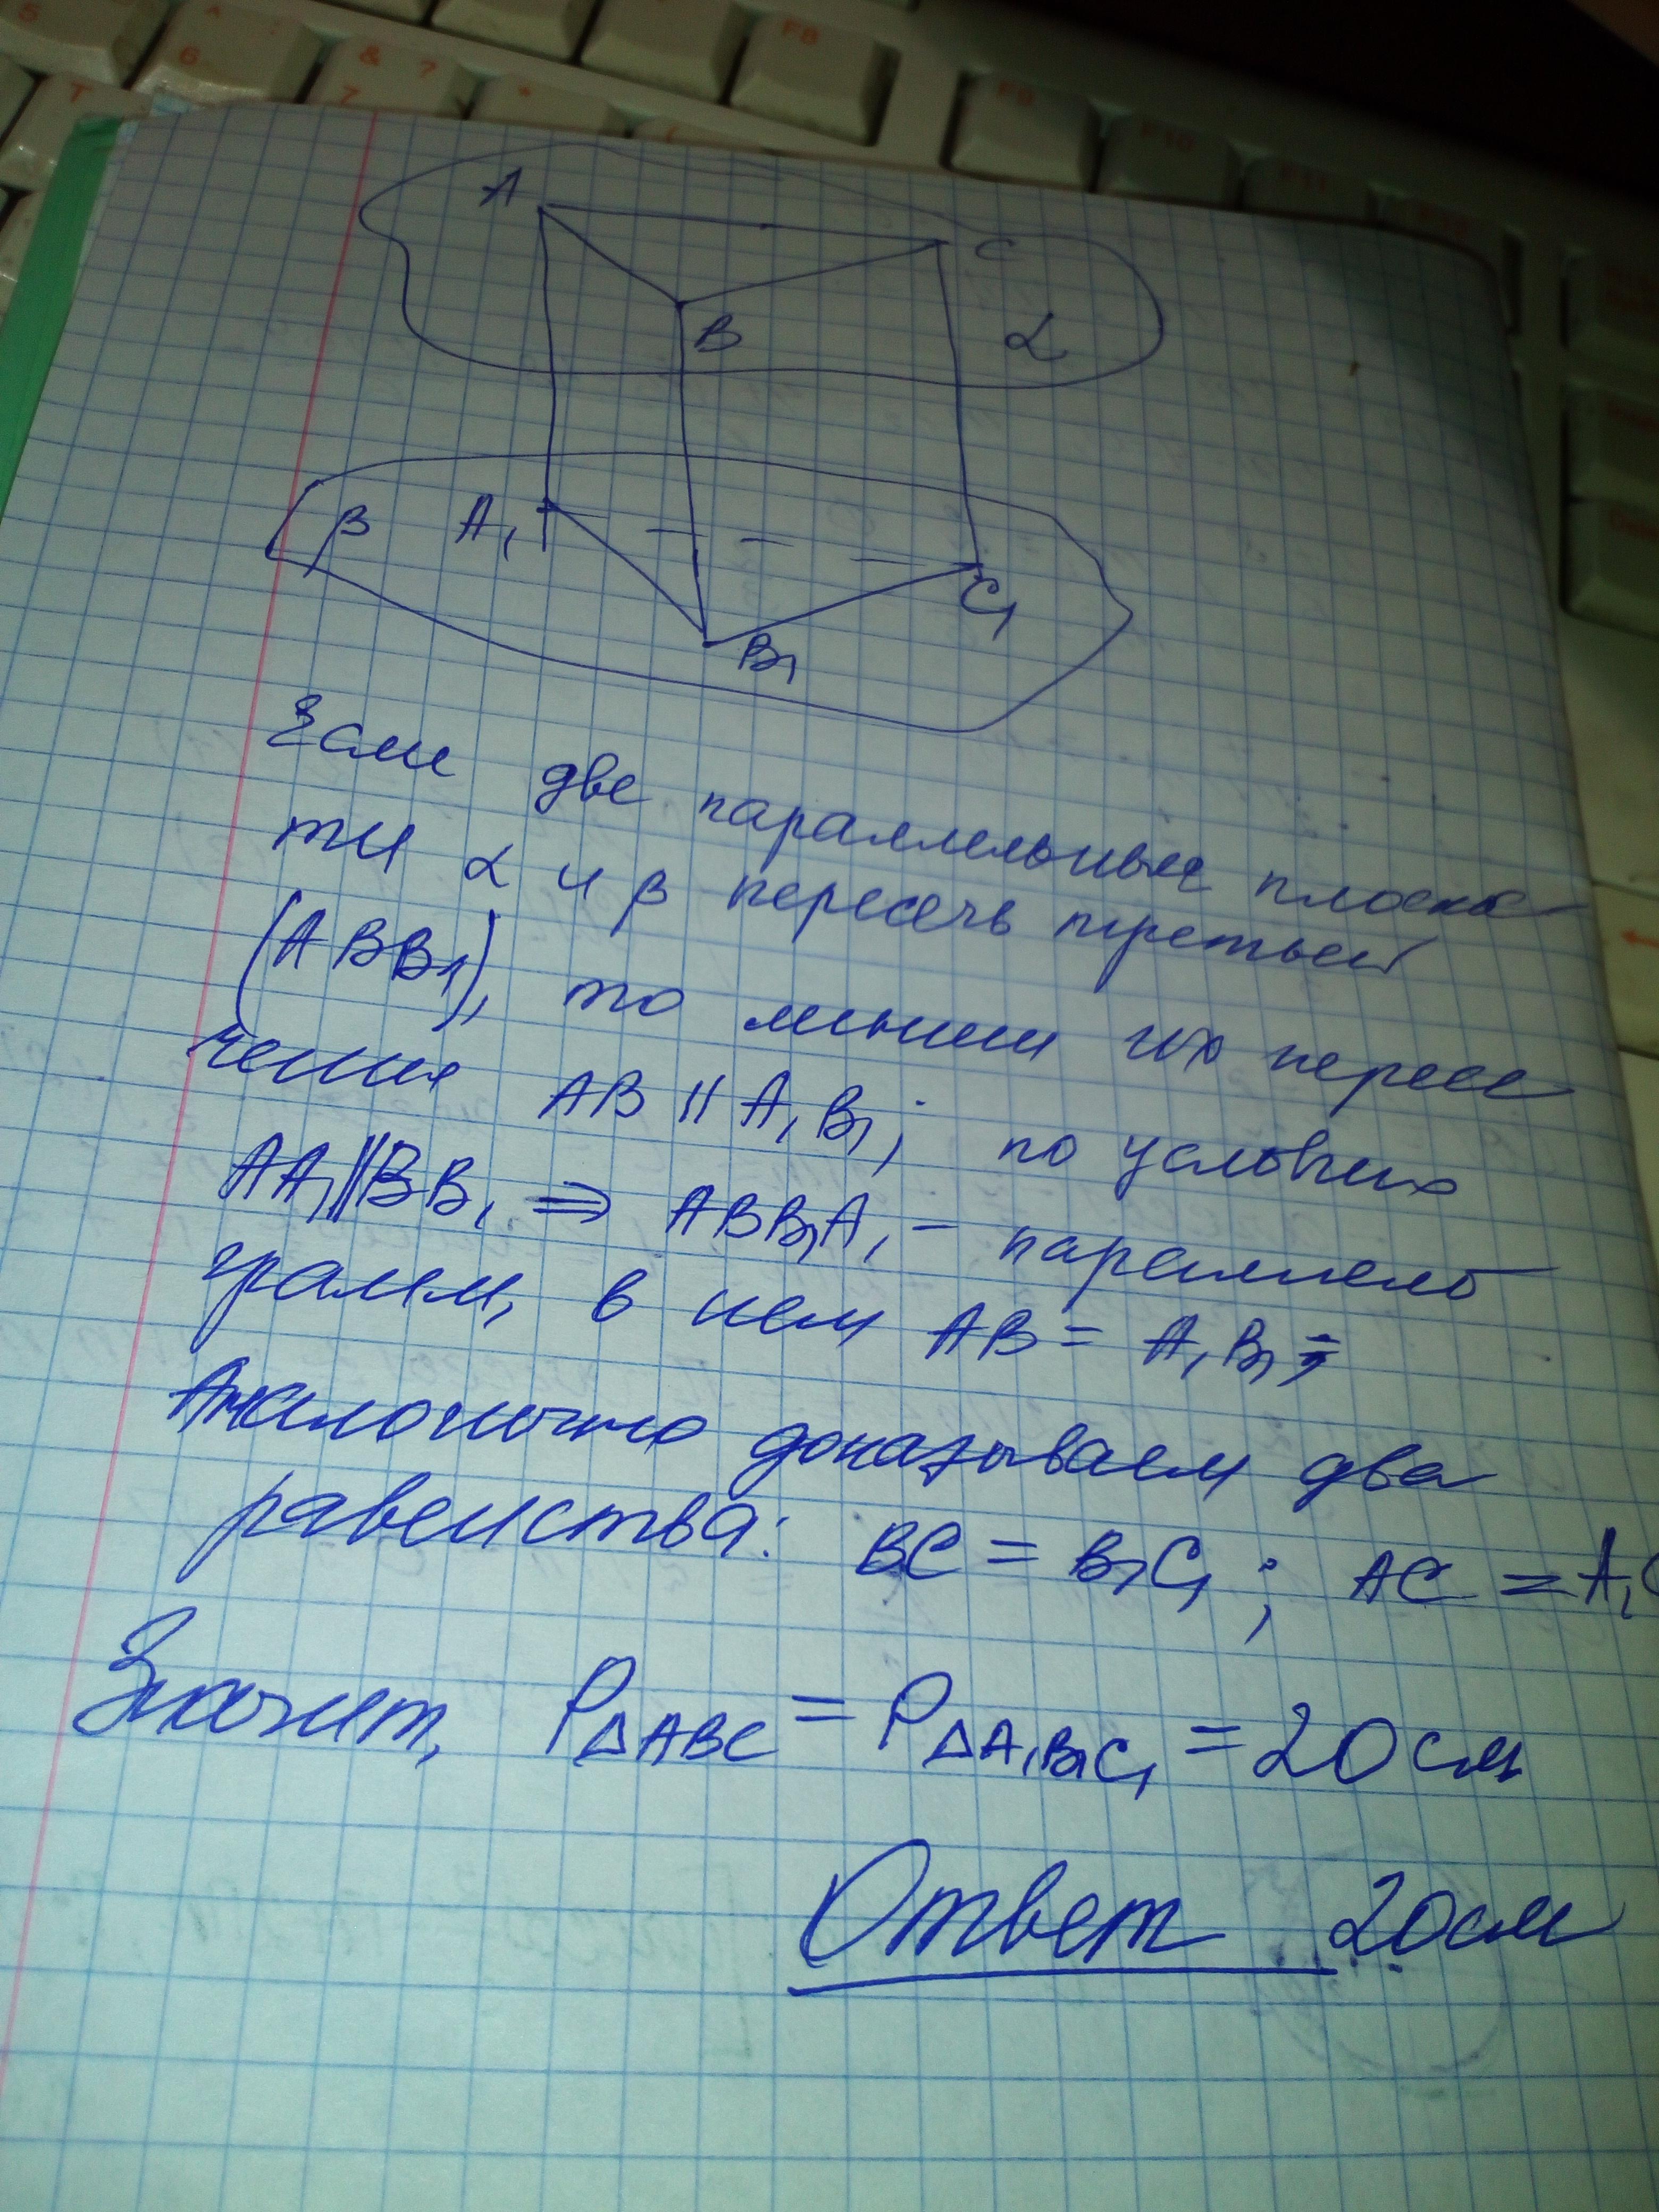 5
^ :
6
& ?
7
*
T
F8
F9
F10
F11
A
C
B
α
β
A₁
C₁
B₁
Если две параллельные плоскос-
ти α и β пересечь третьей
(ABB₁), то линии их пересе
чения AB || A₁B₁; по условию
AA₁||BB₁ ⇒ ABB₁A₁ - параллело
грамм, в нем AB = A₁B₁
Аналогично доказываем два
равенства: BC = B₁C₁; AC = A₁C
Значит, P△ABC = P△A₁B₁C₁ = 20 см
Ответ 20 см